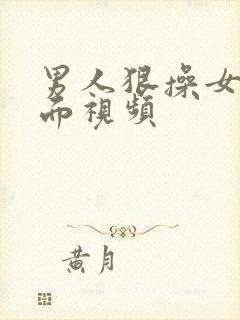 男人狠操女
而视頻
黄月